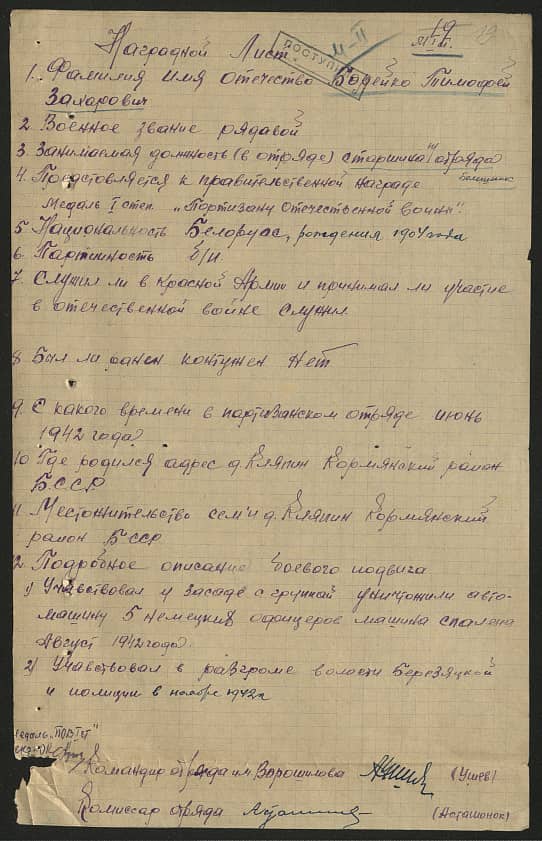 Наградной Лист
ПОСТУПИ
1. Фамилия имя отечество Бодейко Тимофей
Захарович
2. Военное звание рядавой
3. Занимаемая должность (в отряде) старшина отряда
4. Предстовляется к правительственной награде
Медаль I степ. „Партизану Отечественной войны".
5 Национальность Белорус, рождения 1904 года
6. Партийность б/п.
7. Служил ли в Красной Армии и принимал ли участие
в отечественной войне служил
8. Был ли ранен контужен нет
9. С какого времени в партизанском отряде июнь
1942 года
10. Где родился адрес д. Кляпин Кормянский район
БССР
11. Местожительство семьи д. Кляпин Кормянский
район БССР
12. Подробное описание боевого подвига
1) Учавствовал у засаде с групой уничтожили авто-
машину 5 немецких офицеров машина спалена
Август 1942 года.
2) Учавствовал в разгроме волости Березяцкой
и полиции в ноябре 1942 г.
медаль „ПОВ I ст"
Командир отряда им. Ворошилова (Ушев)
Комиссар отряда (Асташонок)